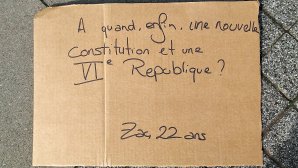 A quand, enfin, une nouvelle
Constitution et une
VIe Republique ?
Zac, 22 ans